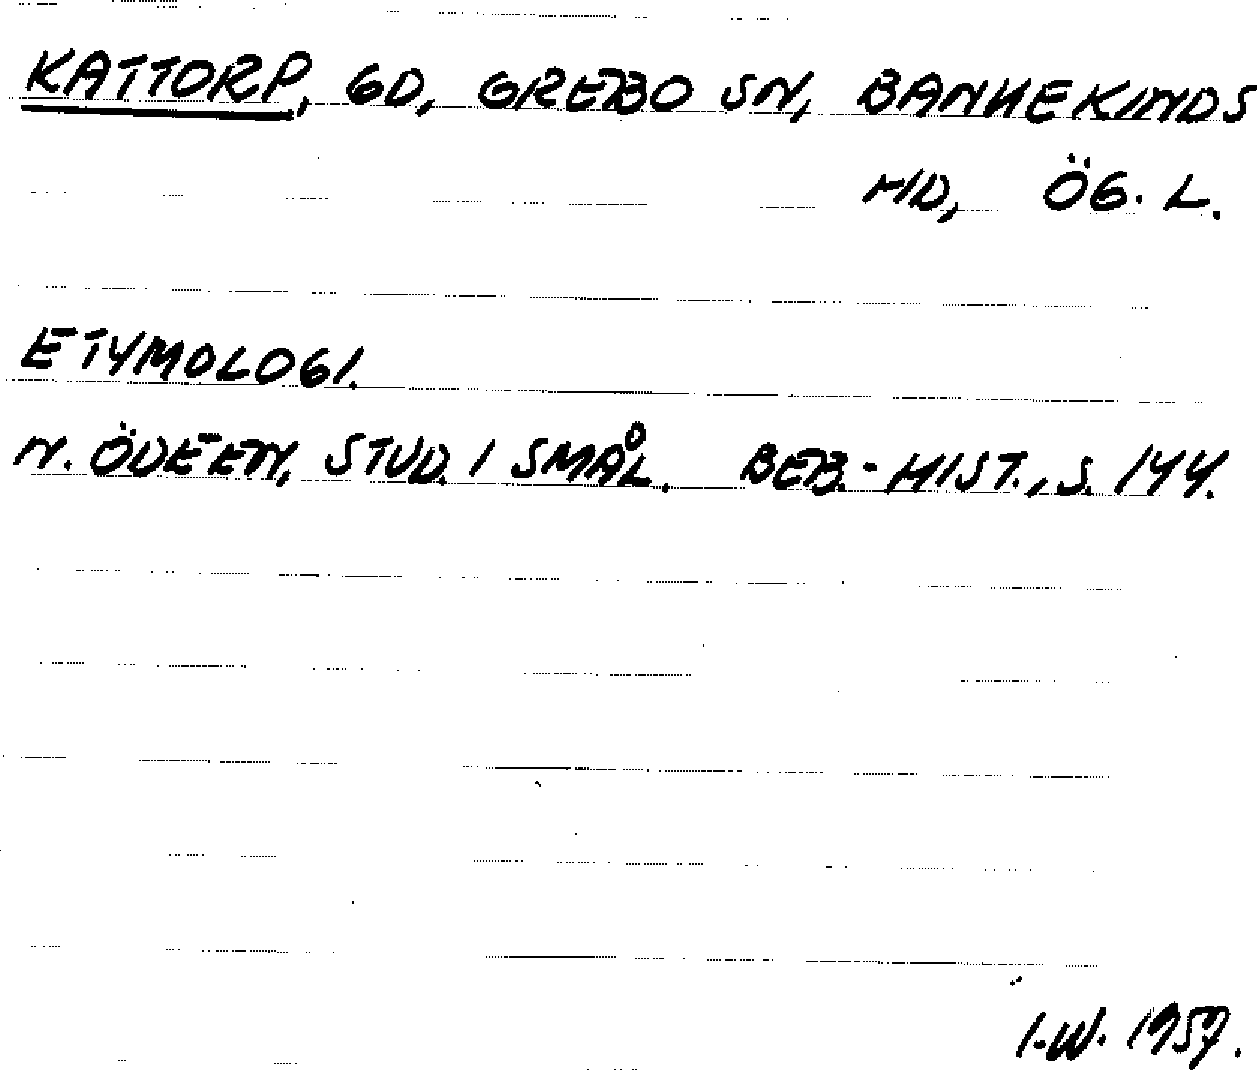 KATTORP, GD, GREBO SN, BANKEKINDS
HD, ÖG. L.
ETYMOLOGI.
N. ÖDEEN, STUD. I SMÅL. BEB.-HIST., S. 144.
I.W. 1959.